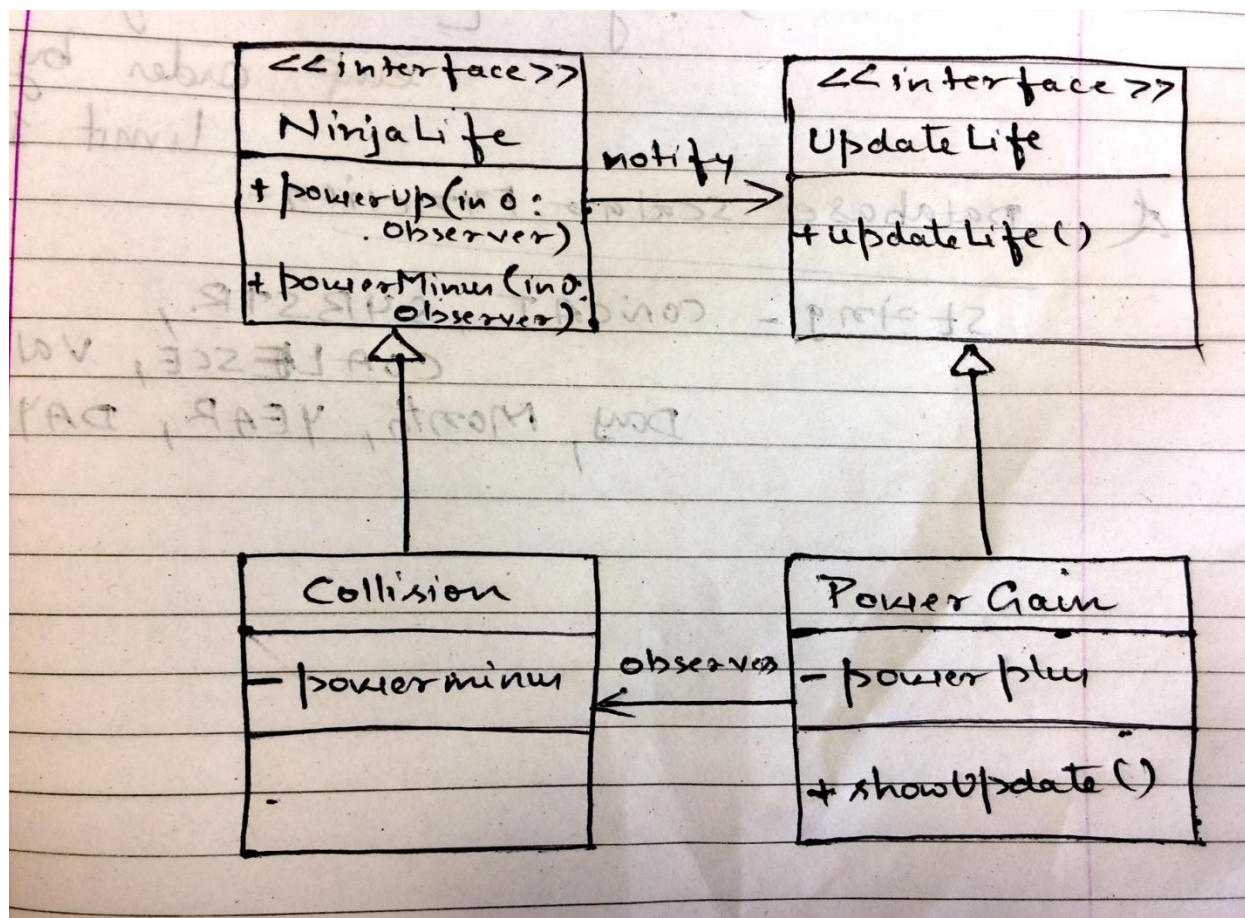 <<interface>>
NinjaLife
+ powerUp(in o:
observer)
+ powerMinus(in o:
observer)
notify
<<interface>>
UpdateLife
+ updateLife()
Collision
- powerminus
observes
Power Gain
- power plus
+ showUpdate()